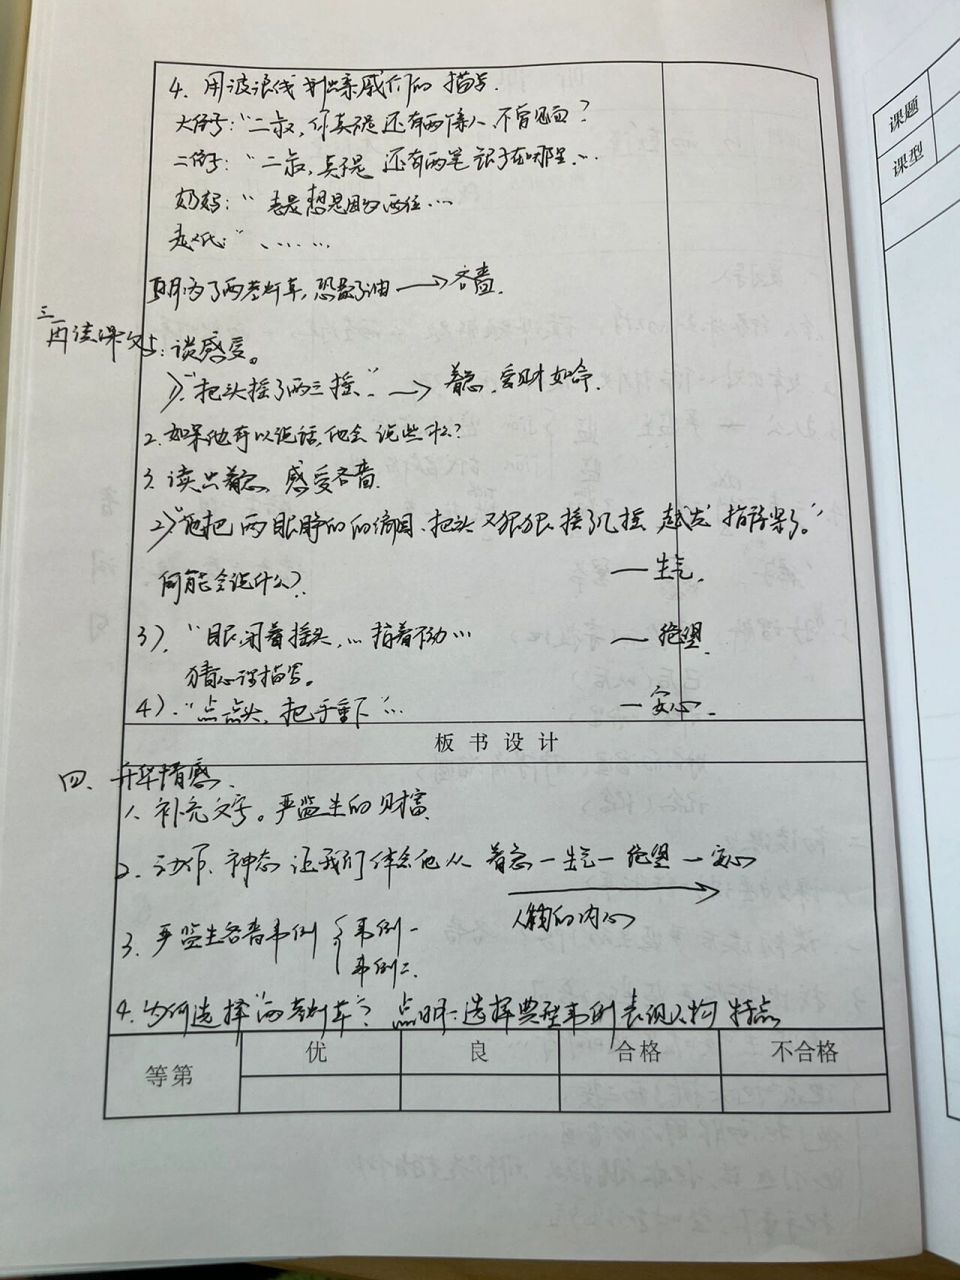 4. 用波浪线划出亲戚们的描写.
大侄子："二叔，你莫不是还有两个亲人不曾见面？
二侄子："二叔，莫不是还有两笔银子在哪里…
奶妈："老爷想是因为两位…
赵氏："……
明明为了两茎灯草，恐费了油 → 吝啬.
三. 再读课文: 谈感受。
1)"把头摇了两三摇." → 着急. 爱财如命.
2. 如果他可以说话，他会说些什么？
3. 读出着急，感受吝啬.
2)"他把两眼睁的的溜圆. 把头又狠狠摇了几摇 越发指得紧了。"
可能会说什么？ — 生气.
3). "眼闭着摇头，… 指着不动… — 绝望.
猜心理描写。
4). "点点头，把手垂下"… — 安心.
板书设计
四、升华情感.
1. 补充文字。严监生的财富.
2. 动作、神态让我们体会他从 着急—生气—绝望—安心
人物的内心
3. 严监生吝啬事例 { 事例一
事例二.
4. 为何选择"两茎灯草"？ 点明:选择典型事例表现人物特点
等第 优 良 合格 不合格
课题
课型